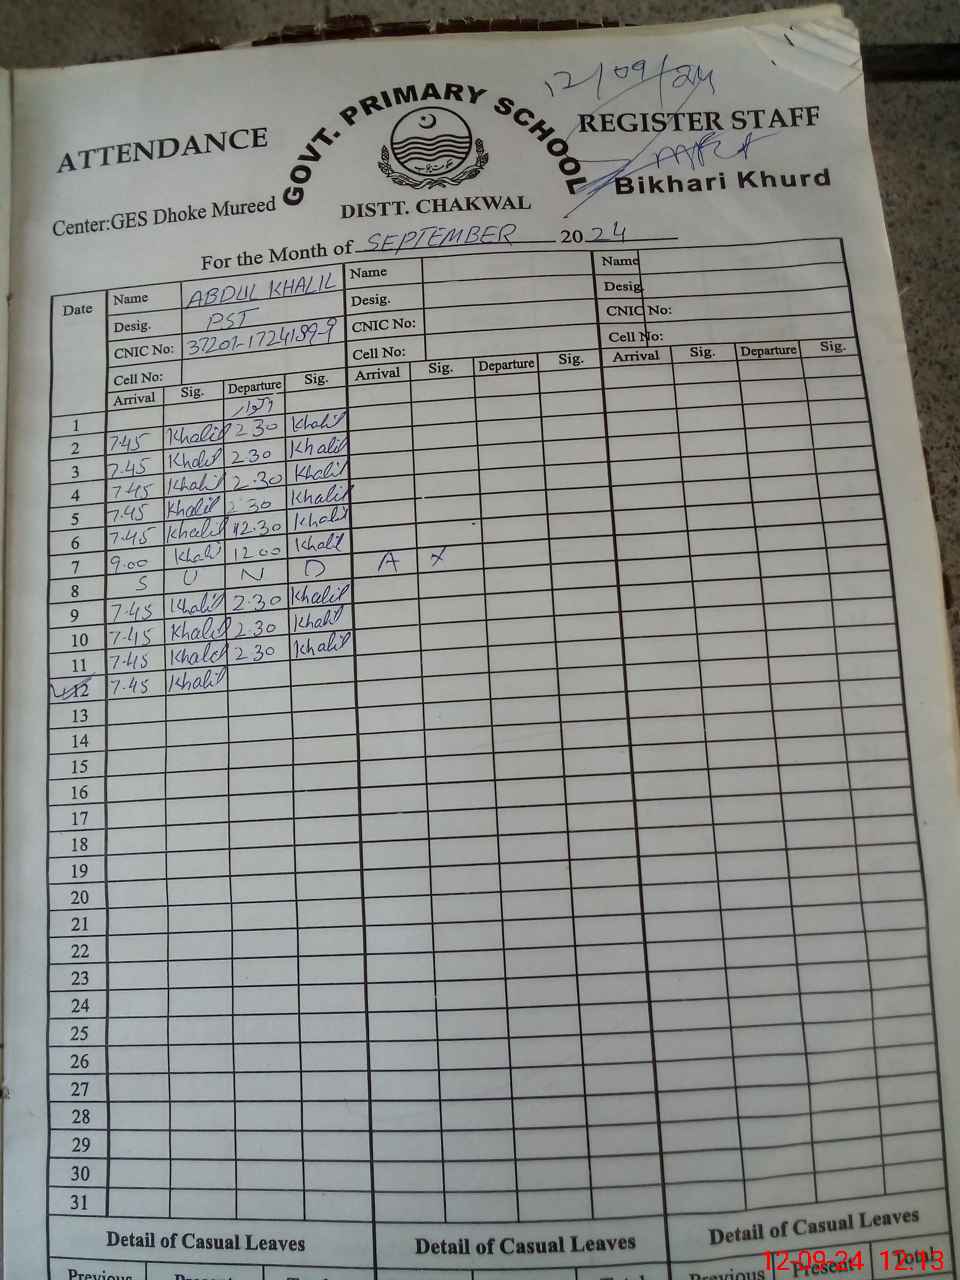 12/09/24
GOVT. PRIMARY SCHOOL
ATTENDANCE REGISTER STAFF
Bikhari Khurd
Center:GES Dhoke Mureed
DISTT. CHAKWAL
For the Month of SEPTEMBER 2024
Date Name ABDUL KHALIL Name Name
Desig. PST Desig. Desig.
CNIC No: 37201-1724189-9 CNIC No: CNIC No:
Cell No: Cell No: Cell No:
Arrival Sig. Departure Sig. Arrival Sig. Departure Sig. Arrival Sig. Departure Sig.
1 اتوار
2 7.45 Khalil 2.30 Khalil
3 7.45 Khalil 2.30 Khalil
4 7.45 Khalil 2.30 Khalil
5 7.45 Khalil 2.30 Khalil
6 7.45 Khalil 12.30 Khalil
7 9.00 Khalil 12.00 Khalil
8 S U N D A Y
9 7.45 Khalil 2.30 Khalil
10 7.45 Khalil 2.30 Khalil
11 7.45 Khalil 2.30 Khalil
12 7.45 Khalil
13
14
15
16
17
18
19
20
21
22
23
24
25
26
27
28
29
30
31
Detail of Casual Leaves Detail of Casual Leaves Detail of Casual Leaves
Previous Present Total Previous Present Total Previous Present Total
12-09-24 12:13